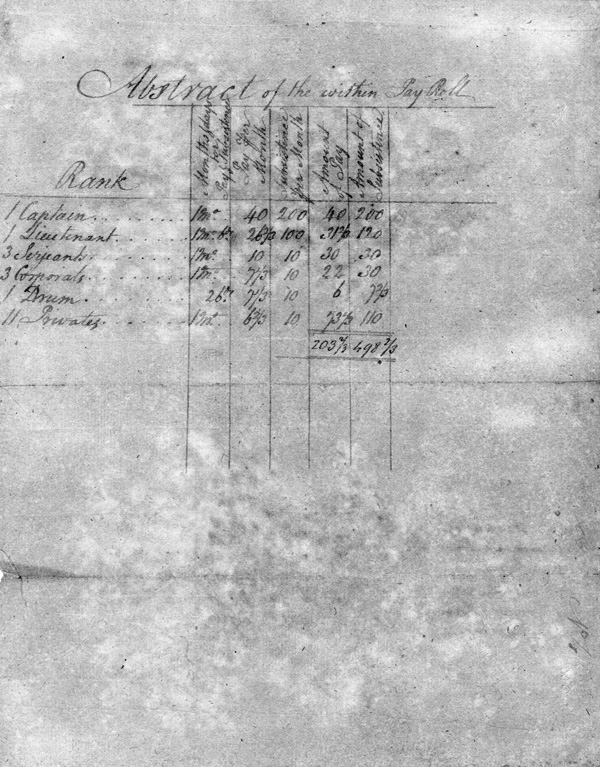 Abstract of the within Pay Roll
Rank Months & days for Pay & Subsistence Pay per Month Subsistence per Month Amount of Pay Amount of Subsistence
1 Captain 1 mo. 40 200 40 200
1 Lieutenant 1 mo. 6 26 2/3 100 120
3 Serjeants 1 mo. 10 10 30 30
3 Corporals 1 mo. 7 1/3 10 22 30
1 Drum 26 7 1/3 10 6
11 Privates 1 mo. 6 2/3 10 73 1/3 110
203 498 2/3